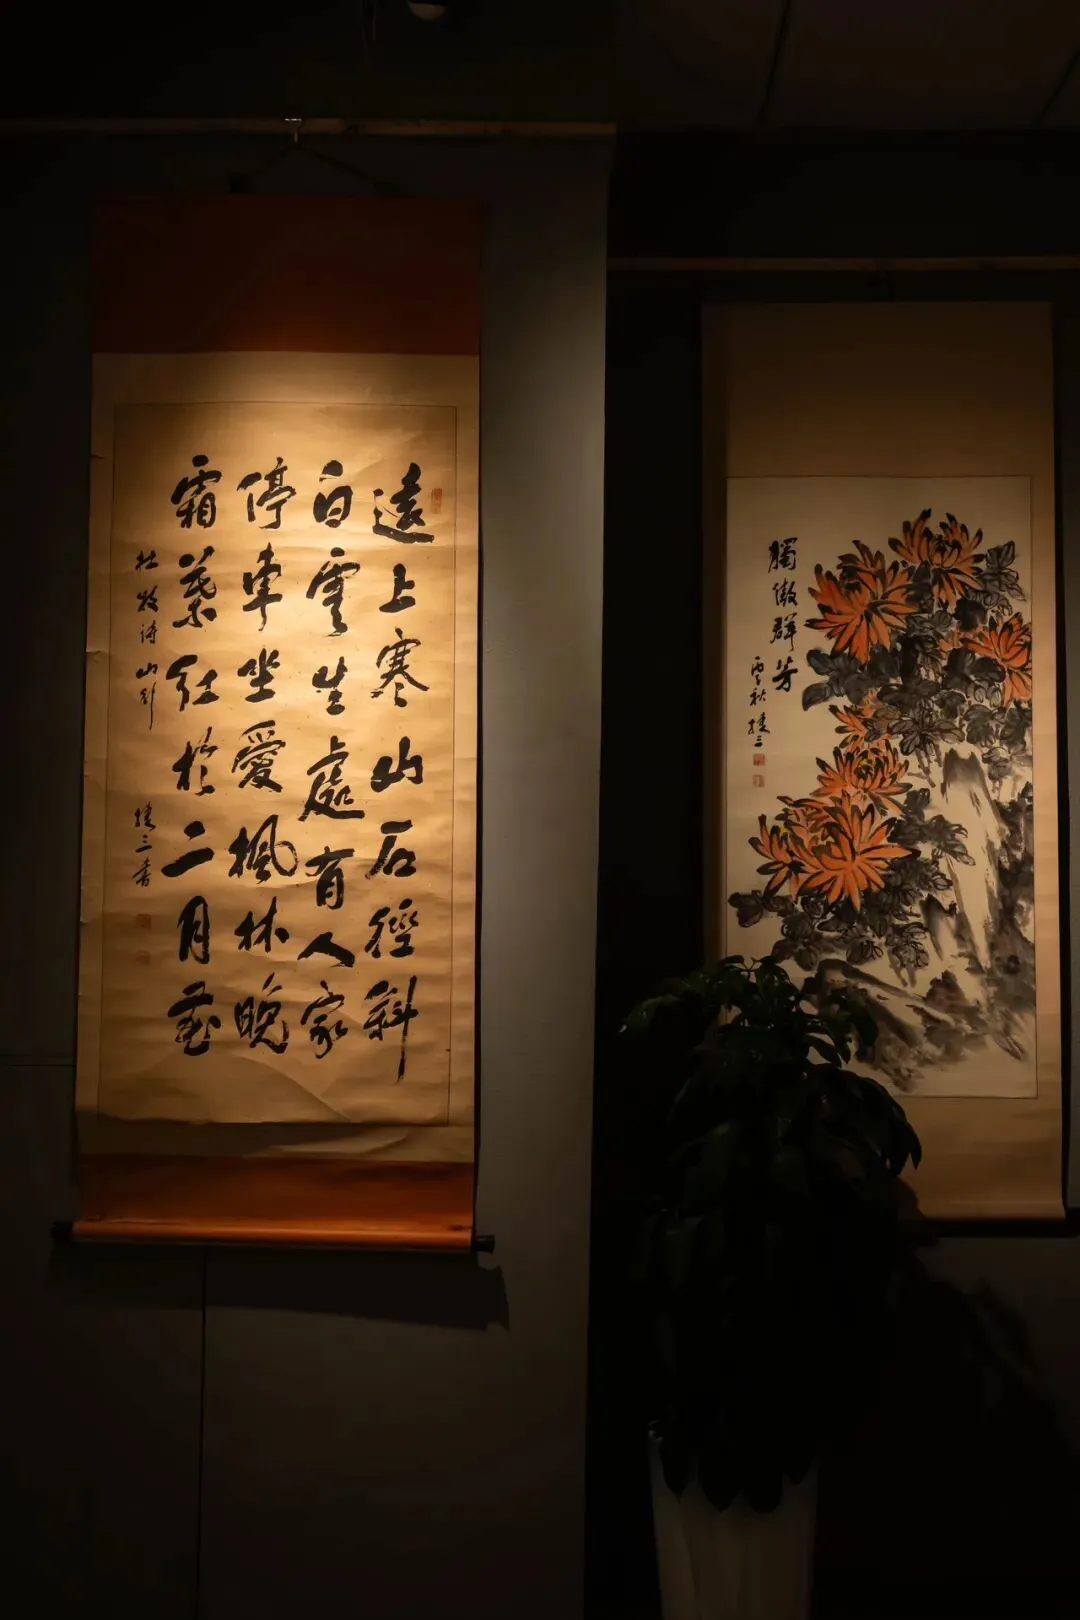 遠上寒山石徑斜
白雲生處有人家
停車坐愛楓林晚
霜葉紅於二月花
杜牧詩山行
三書
獨傲群芳
秋
三